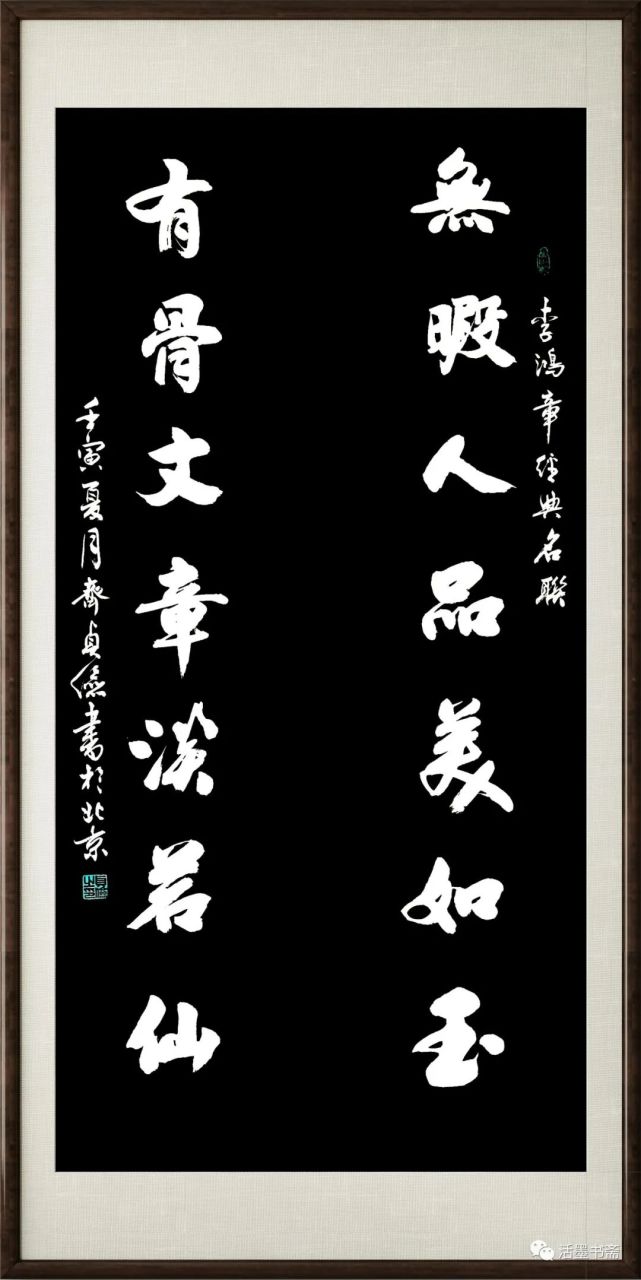 李鴻章經典名聯
無暇人品美如玉
有骨文章淡若仙
壬寅夏月齊貞儉書於北京
活墨书斋